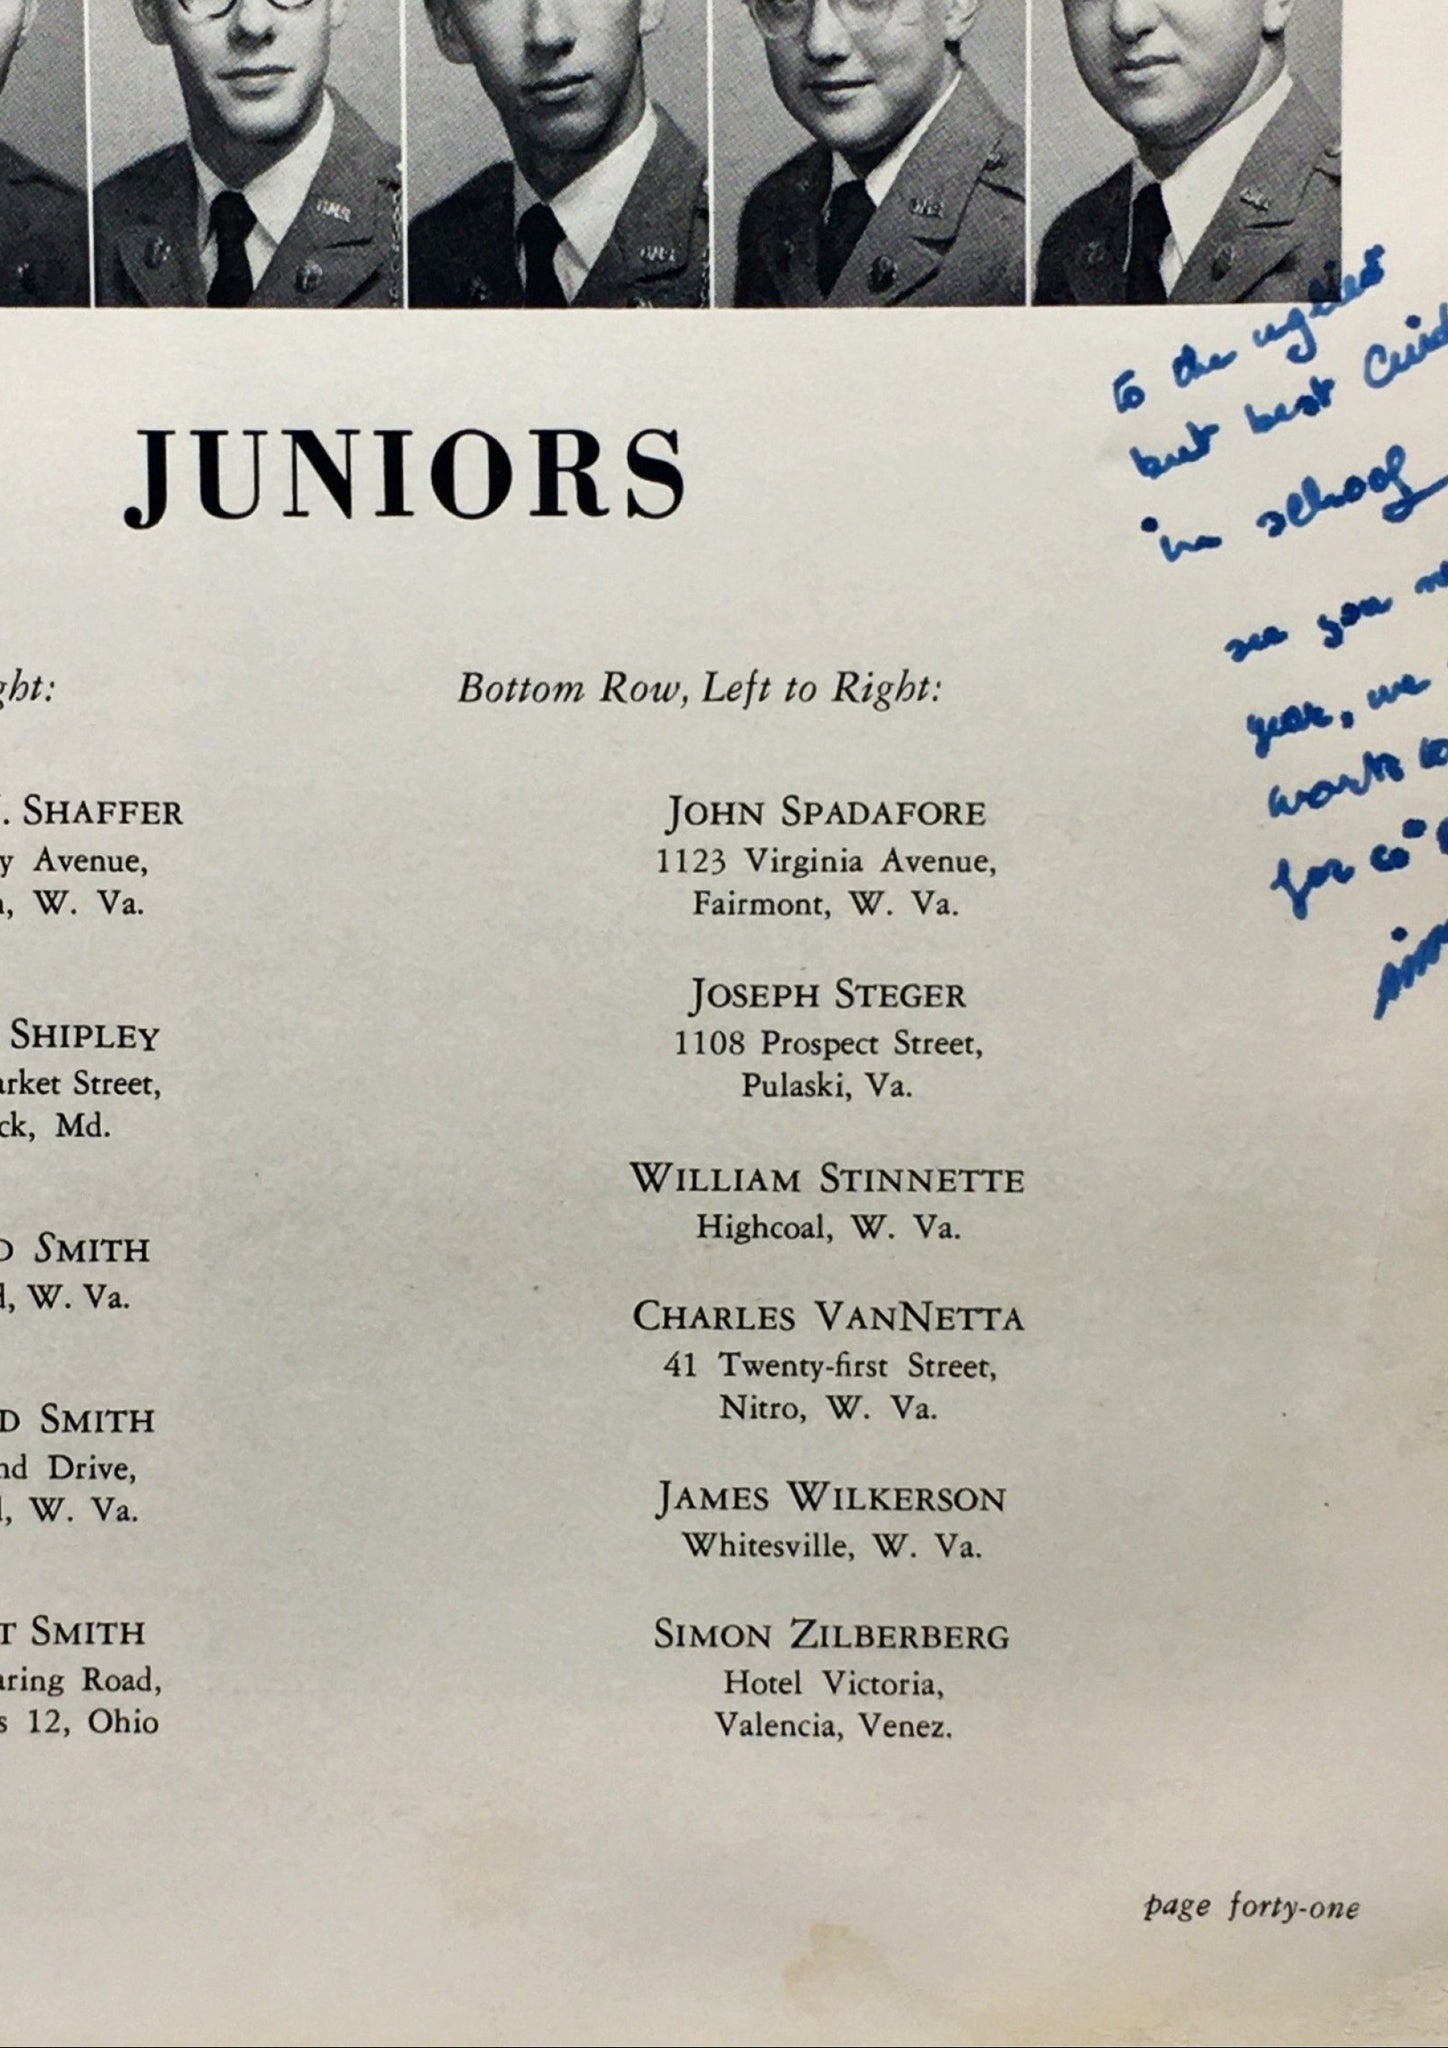 JUNIORS
ght:
. SHAFFER
y Avenue,
, W. Va.
SHIPLEY
arket Street,
ck, Md.
D SMITH
d, W. Va.
D SMITH
nd Drive,
l, W. Va.
T SMITH
aring Road,
s 12, Ohio
Bottom Row, Left to Right:
JOHN SPADAFORE
1123 Virginia Avenue,
Fairmont, W. Va.
JOSEPH STEGER
1108 Prospect Street,
Pulaski, Va.
WILLIAM STINNETTE
Highcoal, W. Va.
CHARLES VANNETTA
41 Twenty-first Street,
Nitro, W. Va.
JAMES WILKERSON
Whitesville, W. Va.
SIMON ZILBERBERG
Hotel Victoria,
Valencia, Venez.
to the ugliest
but best
in school
see you
year, we
to
for
page forty-one